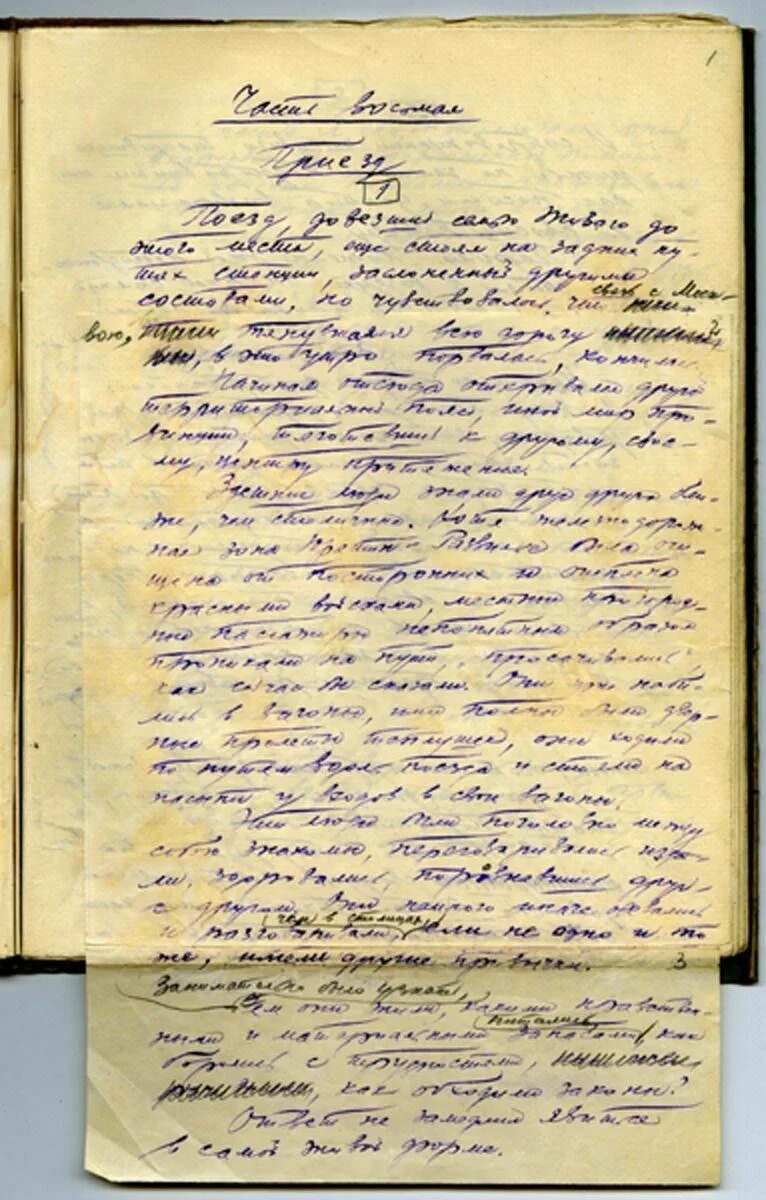 1
Часть восьмая
Приезд
1
Поезд, довезший семью Живаго до
этого места, еще стоял на задних пу-
тях станции, заслоненный другими
составами, но чувствовалось, что связь с Моск-
вою, тянувшаяся всю дорогу
в это утро порвалась, кончилась.
Начиная отсюда открывался другой
территориальный пояс, иной мир про-
винции, тяготевший к другому, свое-
му, центру притяжения.
Здешние люди знали друг друга бли-
же, чем столичные. Хотя железнодорож-
ная зона Юрятин-Развилье была очи-
щена от посторонних и оцеплена
красными войсками, местные пригород-
ные пассажиры непонятным образом
проникали на пути, "просачивались",
как сейчас бы сказали. Они уже наби-
лись в вагоны, ими полны были двер-
ные пролеты теплушек, они ходили
по путям вдоль поезда и стояли на
насыпи у входов в свои вагоны.
Эти люди были поголовно между
собою знакомы, переговаривались изда-
ли, здоровались, поровнявшись друг
с другом. Они немного иначе одевались
и разговаривали, чем в столицах, ели не одно и то
же, имели другие привычки. 3
Занимательно было узнать,
чем они жили, какими нравствен-
ными и материальными запасами питались, как
боролись с трудностями,
как обходили законы?
Ответ не замедлил явиться
в самой живой форме.